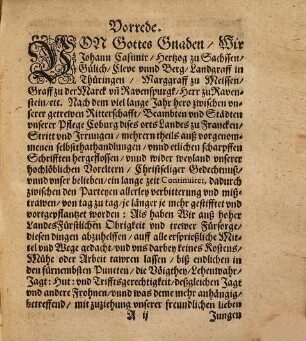 Vorrede.
VON Gottes Gnaden / Wir
Johann Casimir / Hertzog zu Sachssen /
Gülich / Cleve vnnd Berg / Landgraff in
Thüringen / Marggraff zu Meissen /
Graff zu der Marck vñ Ravenspurgk / Herr zu Raven-
stein / etc. Nach dem viel lange Jahr hero zwischen vn-
serer getrewen Ritterschafft / Beambten vnd Städten
vnserer Pflege Coburg dises orts Landes zu Francken /
Stritt vnd Irrungen / mehrern theils auß vorgenom-
menen selbstthathandlungen / vnnd etlichen scharpffen
Schrifften hergeflossen / vnnd wider weyland vnserer
hochlöblichen Voreltern / Christseliger Gedechtnuß /
vnnd vnser belieben / ein lange zeit Continuiret, dadurch
zwischen den Parteyen allerley verbitterung vnd miß-
trawen / von tag zu tag / je länger je mehr gestifftet vnd
vortgepflantzet worden : Als haben Wir auß hoher
LandesFürstlichen Obrigkeit vnd trewer Fürsorge /
diesen dingen abzuhelffen / auff alle ersprießliche Mit-
tel vnd Wege gedacht / vnd vns darbey keines Kostens /
Mühe oder Arbeit tawren lassen / biß endlichen in
den fürnembsten Puncten / die Voigthey / Lehenwahr /
Jagt : Hut : vnd Trifftsgerechtigkeit / deßgleichen Jagt
vnd andere Frohnen / vnnd was deme mehr anhängig /
betreffend / mit zuziehung vnserer freundlichen lieben
A ij Jungen